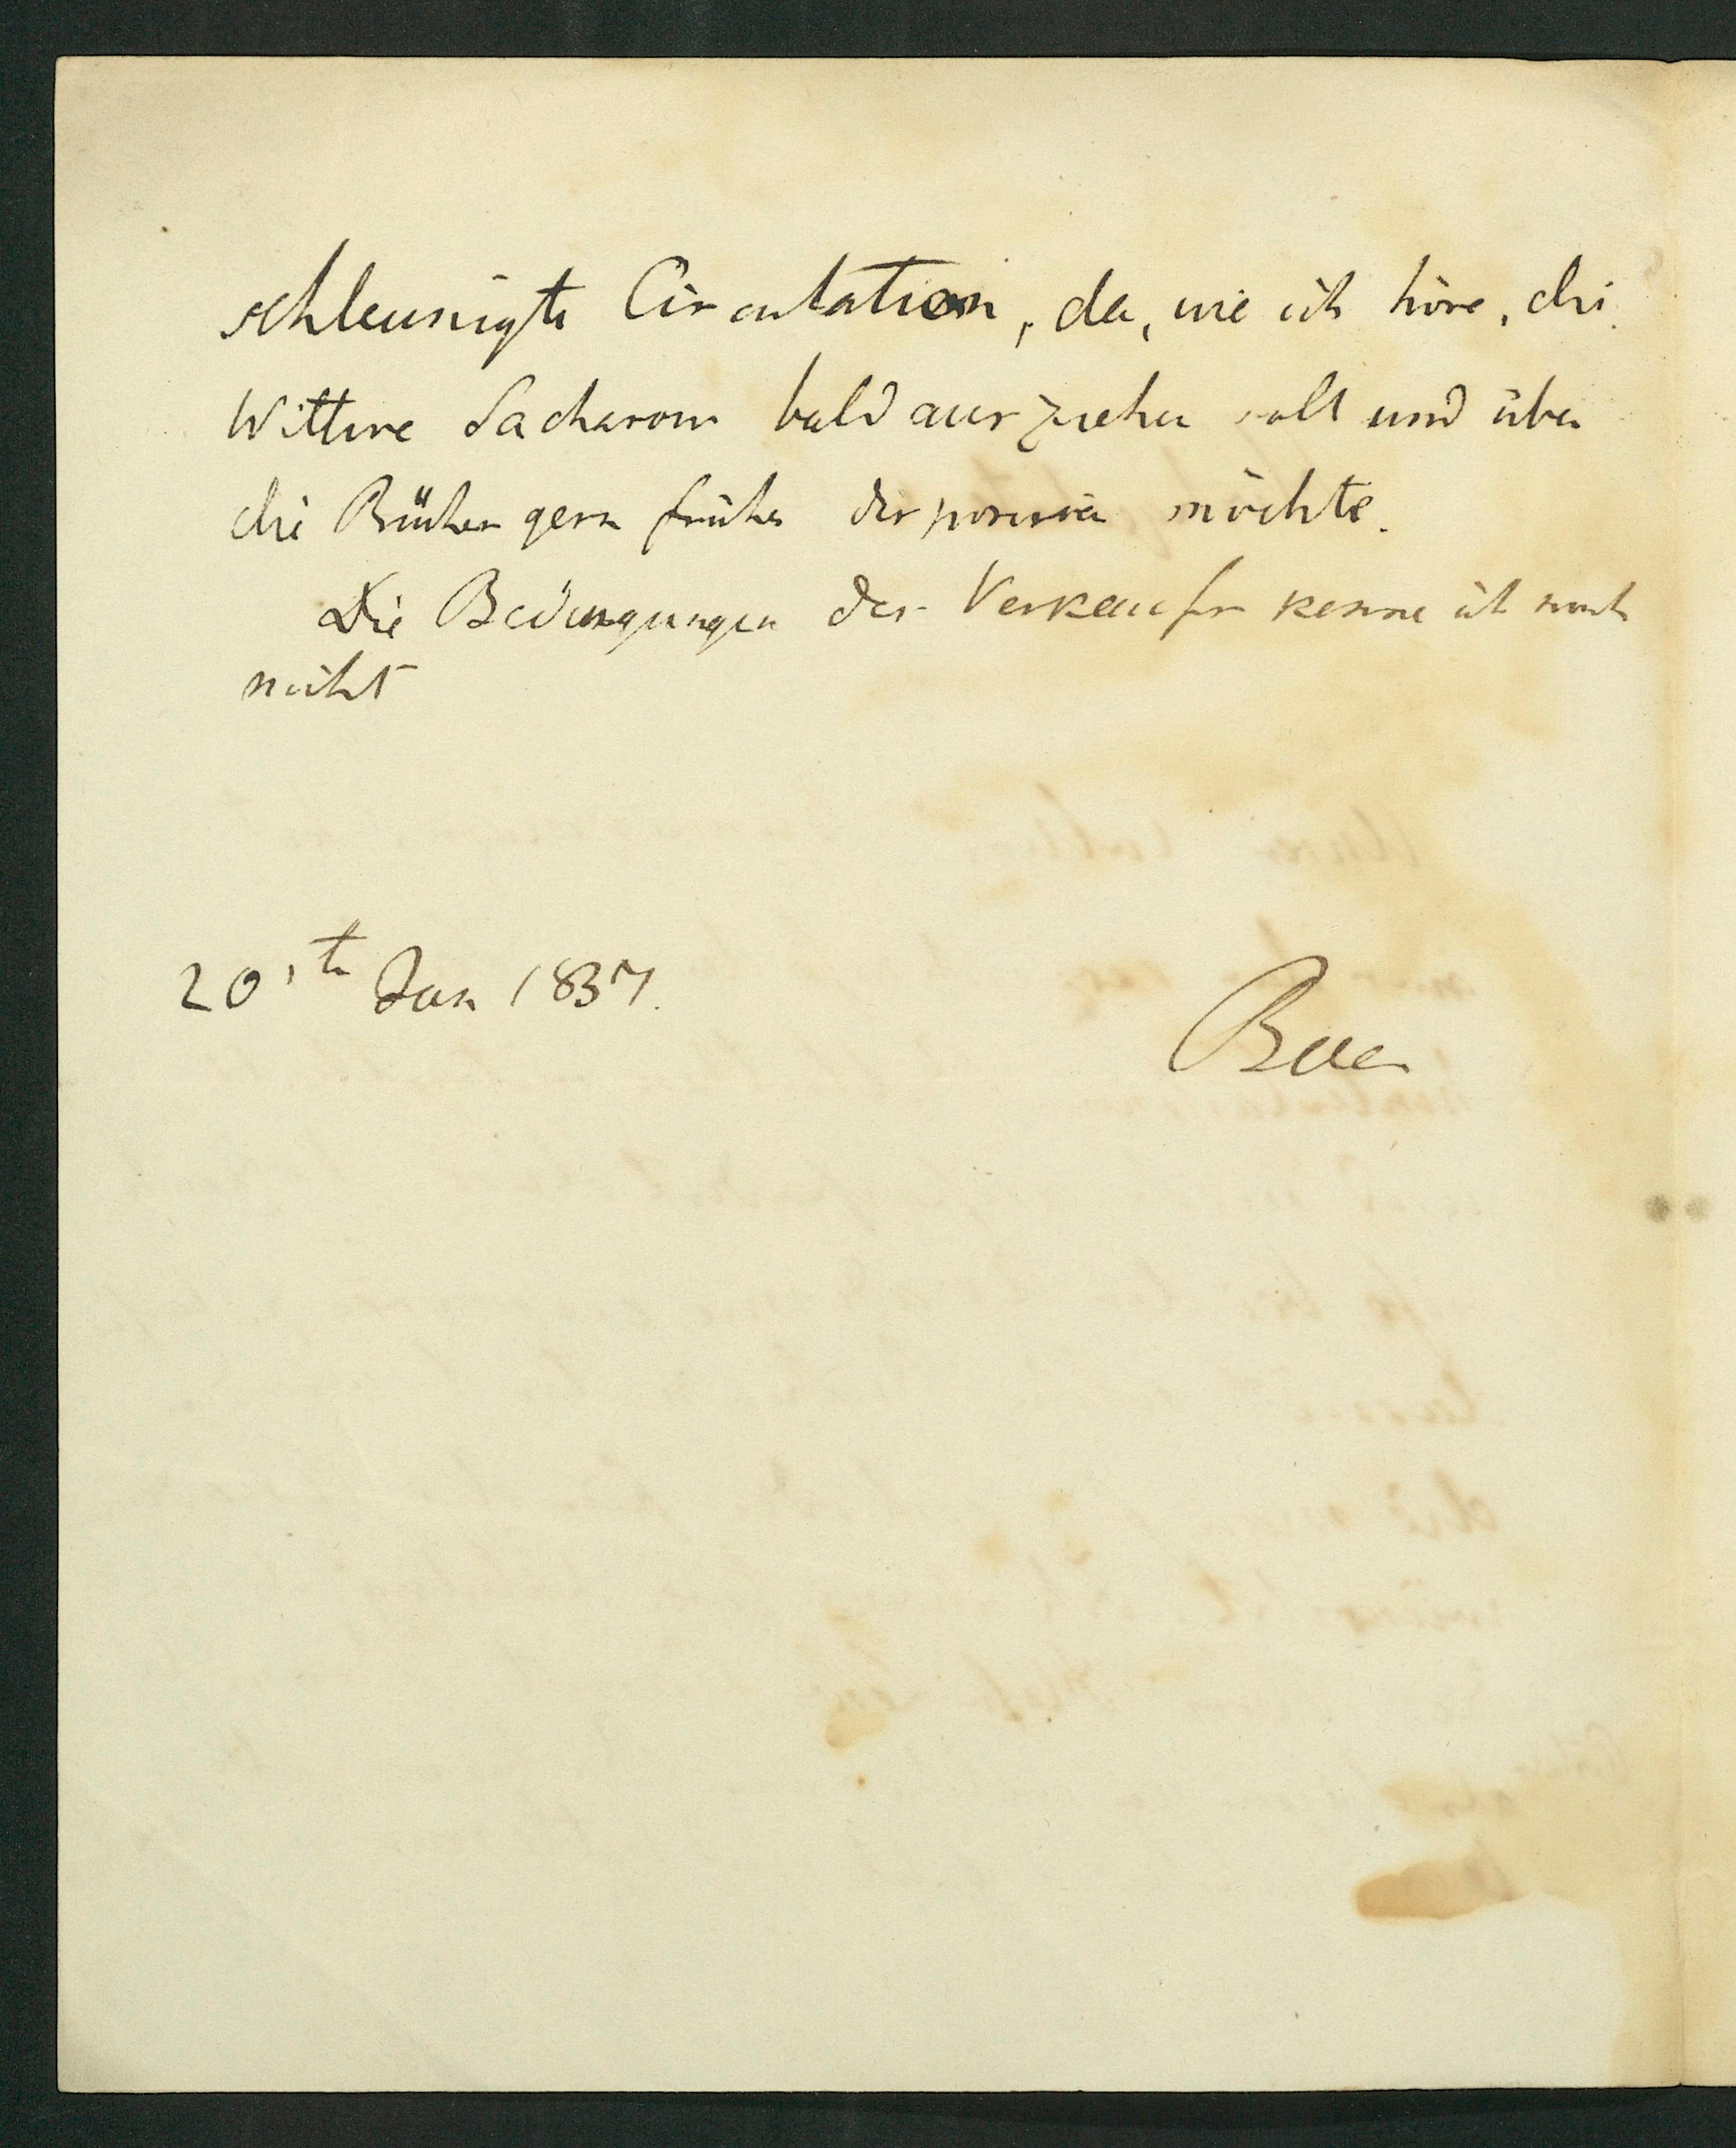 schleunigste Circulation, da, wie ich höre, die
Wittwe Sacharow bald ausziehen soll und über
die Bücher gern früher disponiren möchte.
Die Bedingungen des Verkaufs kenne ich noch
nicht
20ste Jan 1837.
Baer